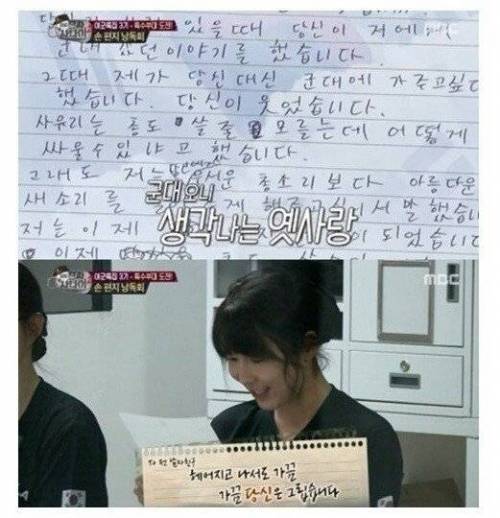 여군특집 3기 - 특수부대 도전!
손 편지 낭독회
MBC
있을때 당신이 저에
군대 갔던 이야기를 했습니다.
그때 제가 당신대신 군대에 가주고싶다
했습니다. 당신이 웃었습니다.
사유리는 총도 쏠줄 모르는데 어떻게
싸울수 있냐고 했습니다.
그래도 저는 총소리보다 아름다운
새소리를
저는 이제 되었습니다
이제
군대 오니
생각나는 옛사랑
여군특집 3기 - 특수부대 도전!
손 편지 낭독회
MBC
To 전 남자친구
헤어지고 나서도 가끔
가끔 당신은 그립습니다